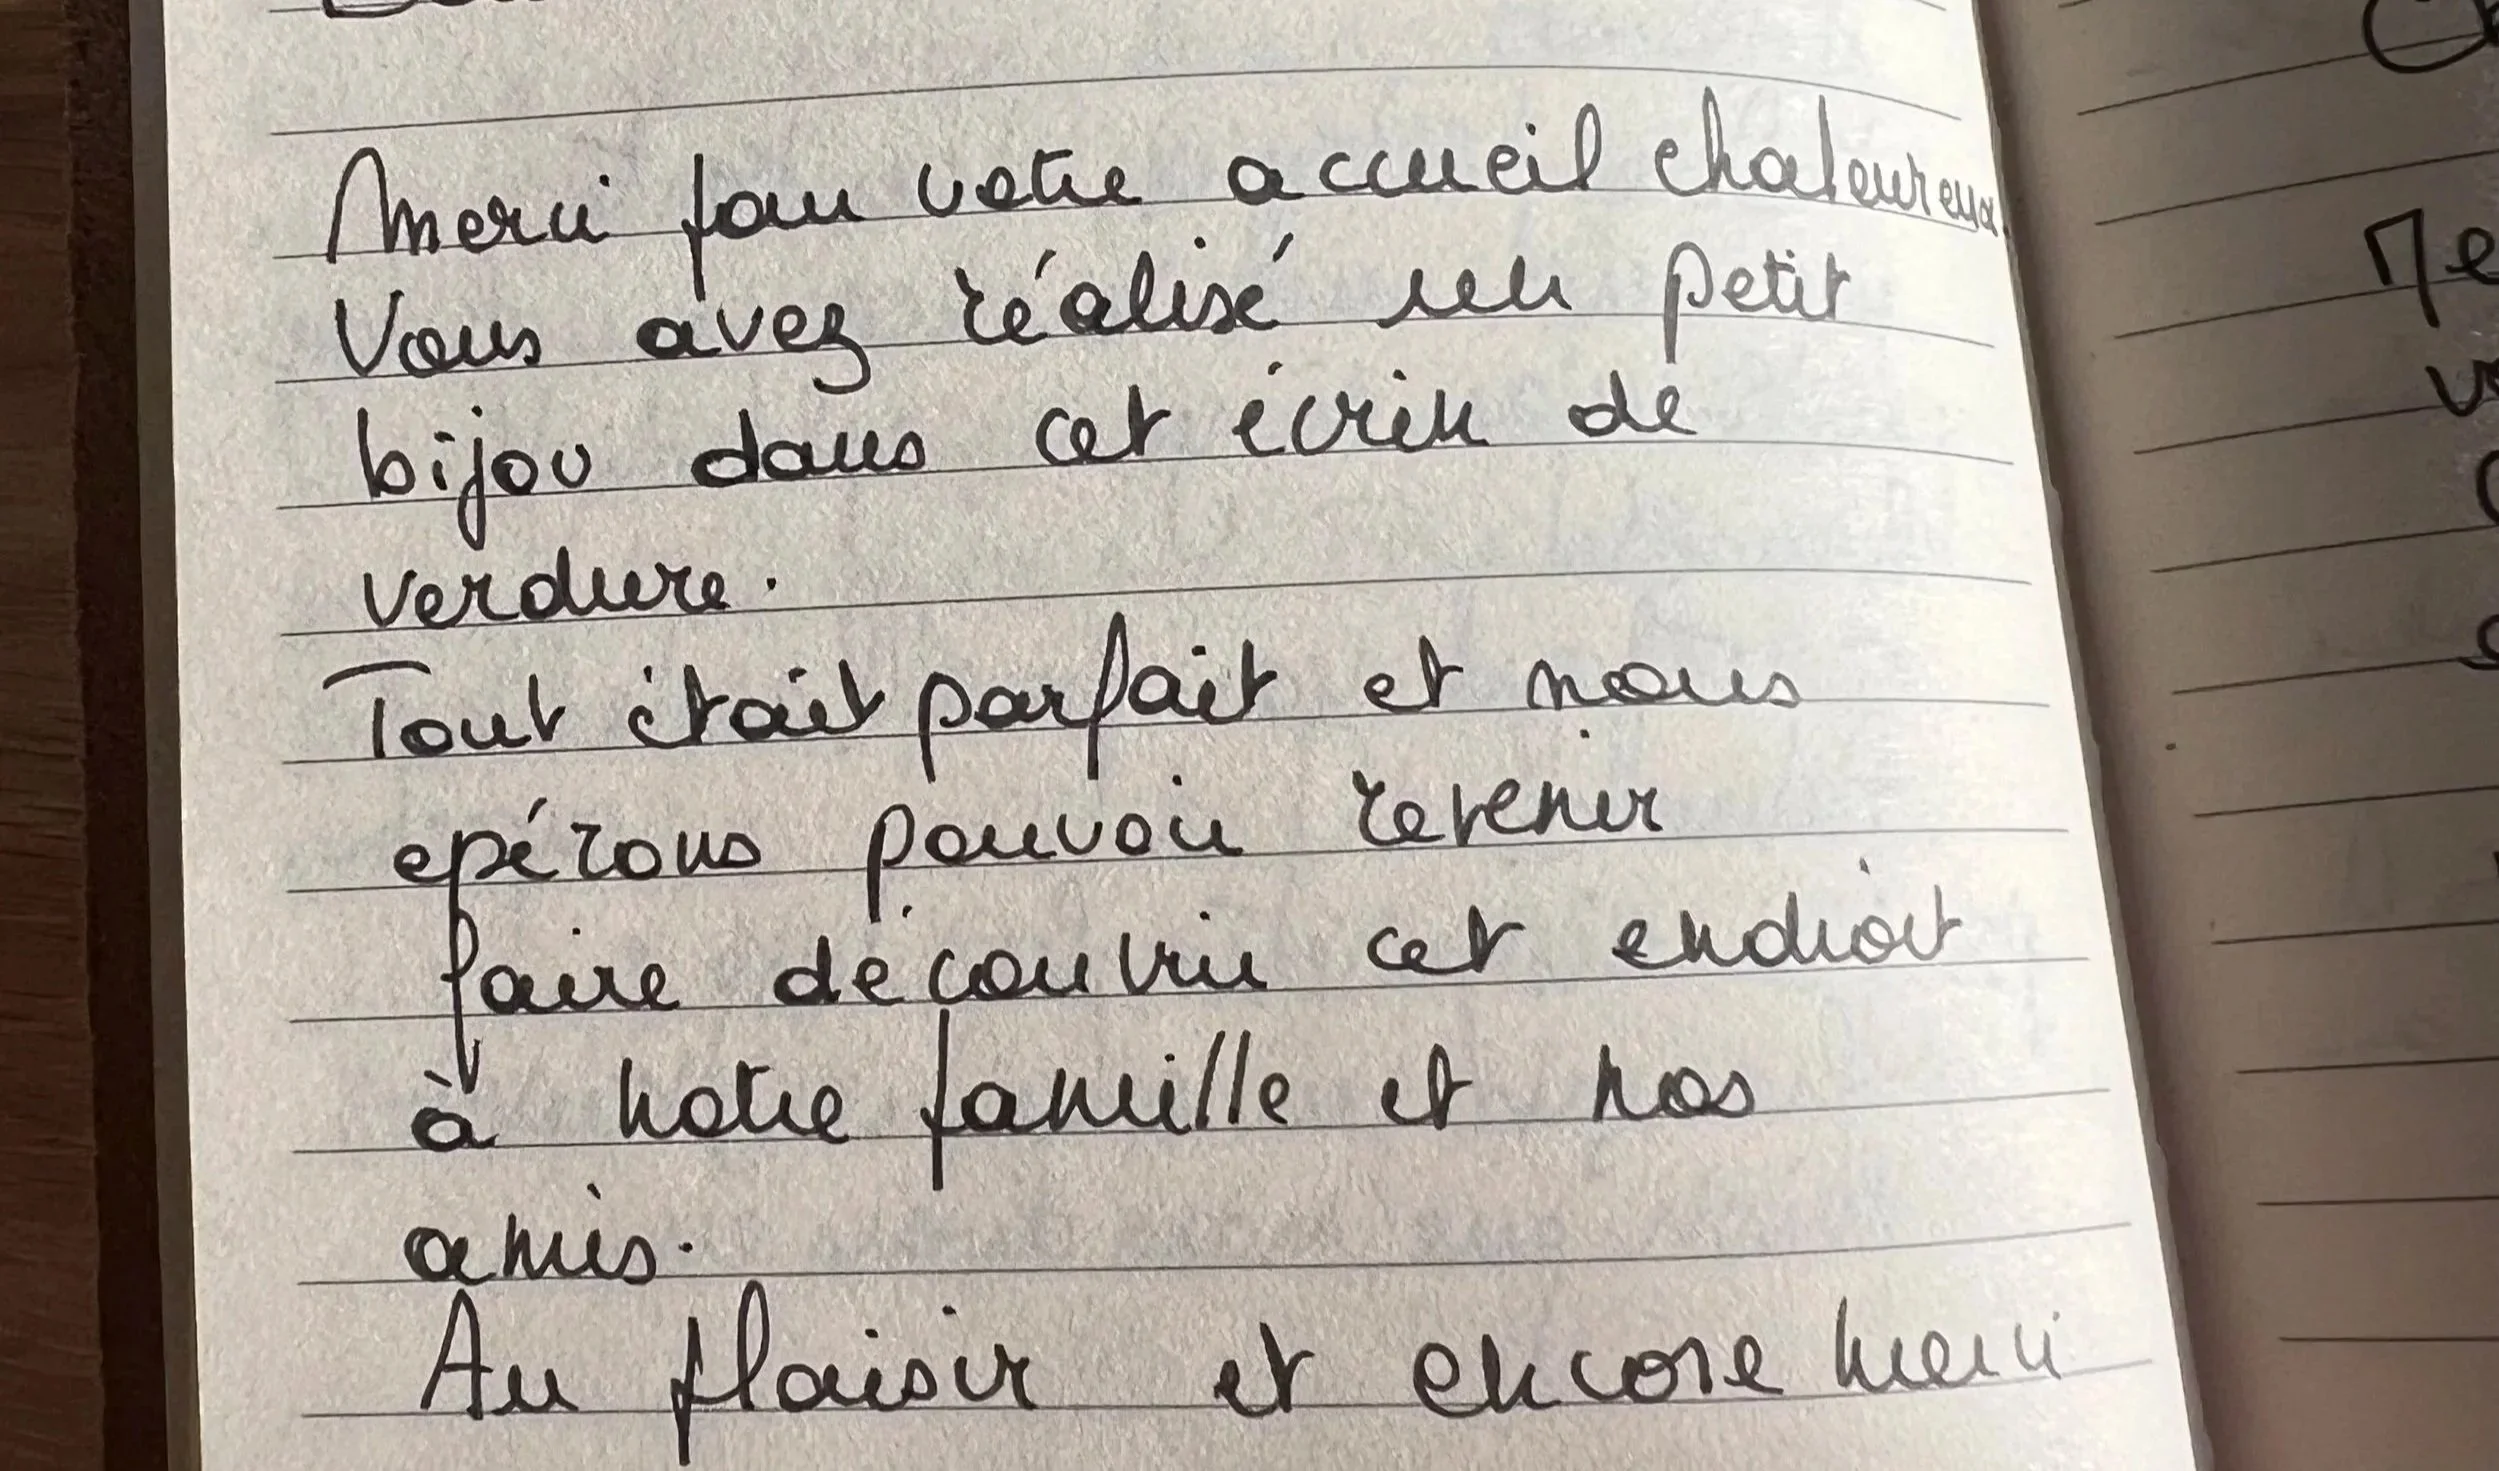 Merci pour votre accueil chaleureux.
Vous avez réalisé un petit
bijou dans cet écrin de
verdure.
Tout était parfait et nous
epérons pouvoir revenir
faire découvrir cet endroit
à notre famille et nos
amis.
Au plaisir et encore merci